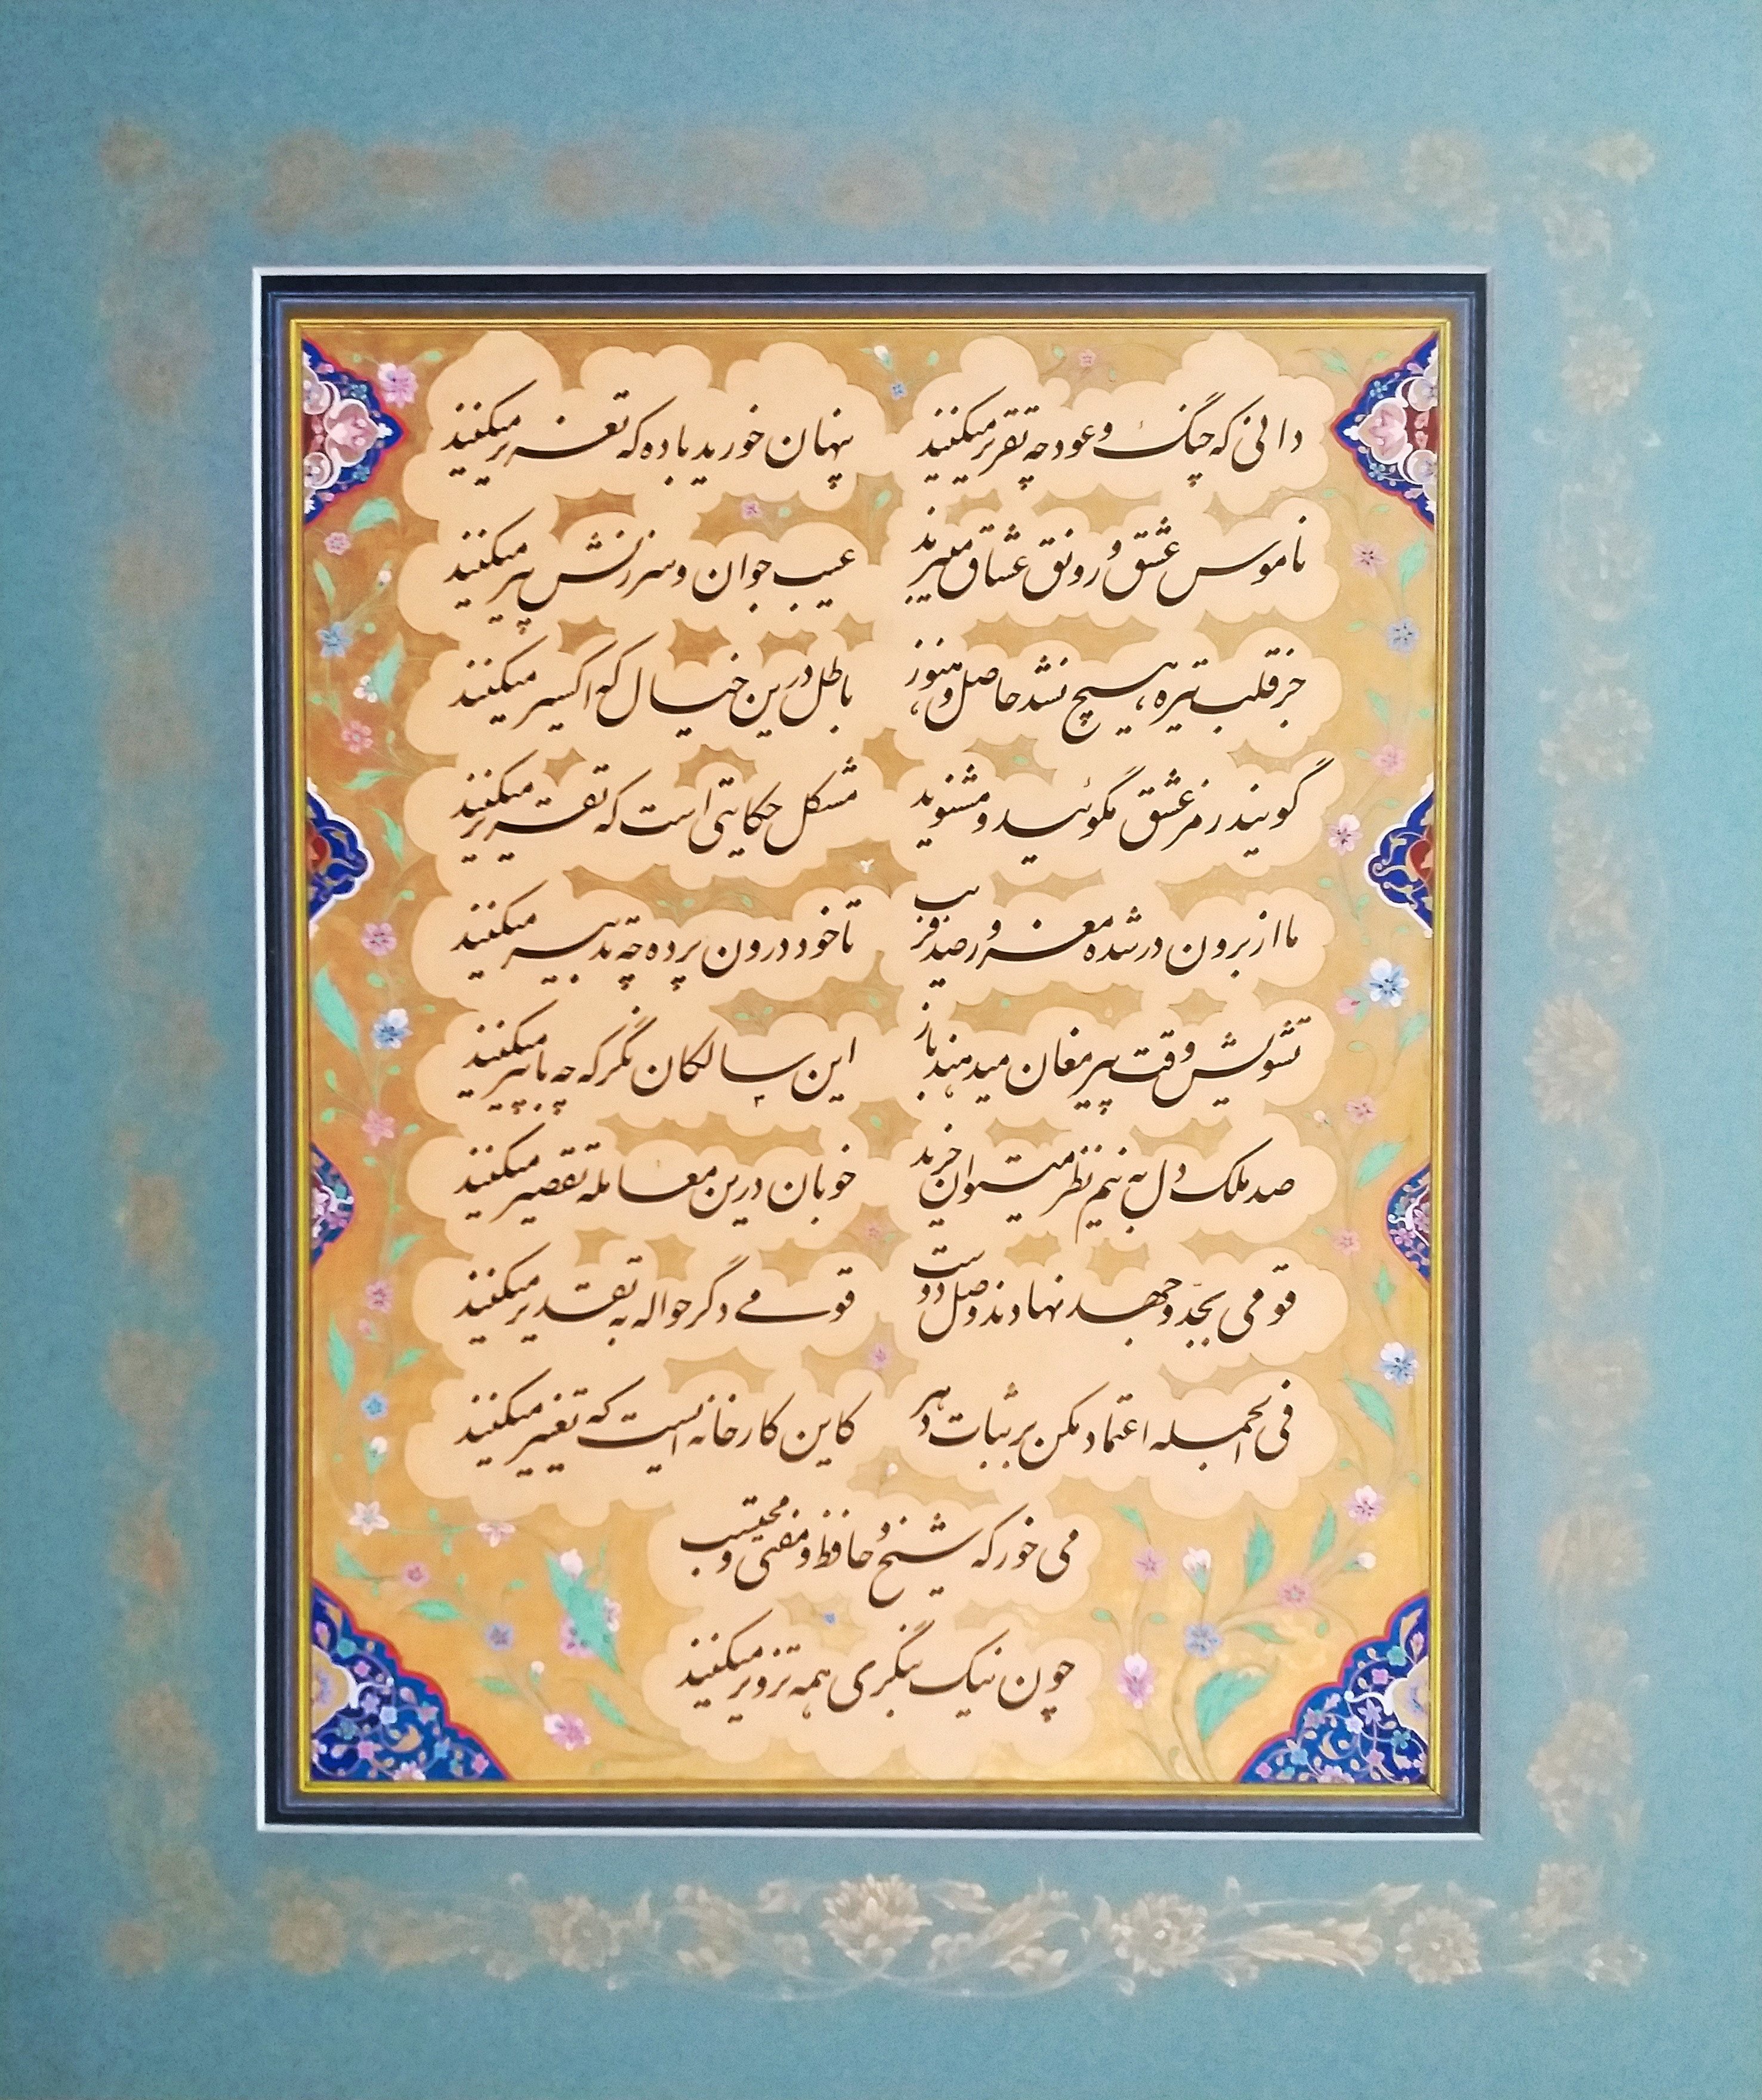 دانی که چنگ و عود چه تقریر میکنند پنهان خورید باده که تعزیر میکنند
ناموس عشق و رونق عشاق میبرند عیب جوان و سرزنش پیر میکنند
جز قلب تیره، هیچ نشد حاصل و هنوز، باطل درین خیال که اکسیر میکنند
گویند رمز عشق مگوئید و مشنوید مشکل حکایتی است که تقریر میکنند
ما از برون در شده مغرور صد فریب تا خود درون پرده چه تدبیر میکنند
تشویش وقت پیر مغان میدهند باز این سالکان نگر که چه با پیر میکنند
صد ملک دل به نیم نظر میتوان خرید خوبان درین معامله تقصیر میکنند
قومی بجدّ و جهد نهادند وصل دوست قومی دگر حواله به تقدیر میکنند
فی الجمله اعتماد مکن بر ثبات دهر کاین کارخانه ایست که تغییر میکنند
می خور که شیخ و حافظ و مفتی و محتسب
چون نیک بنگری همه تزویر میکنند